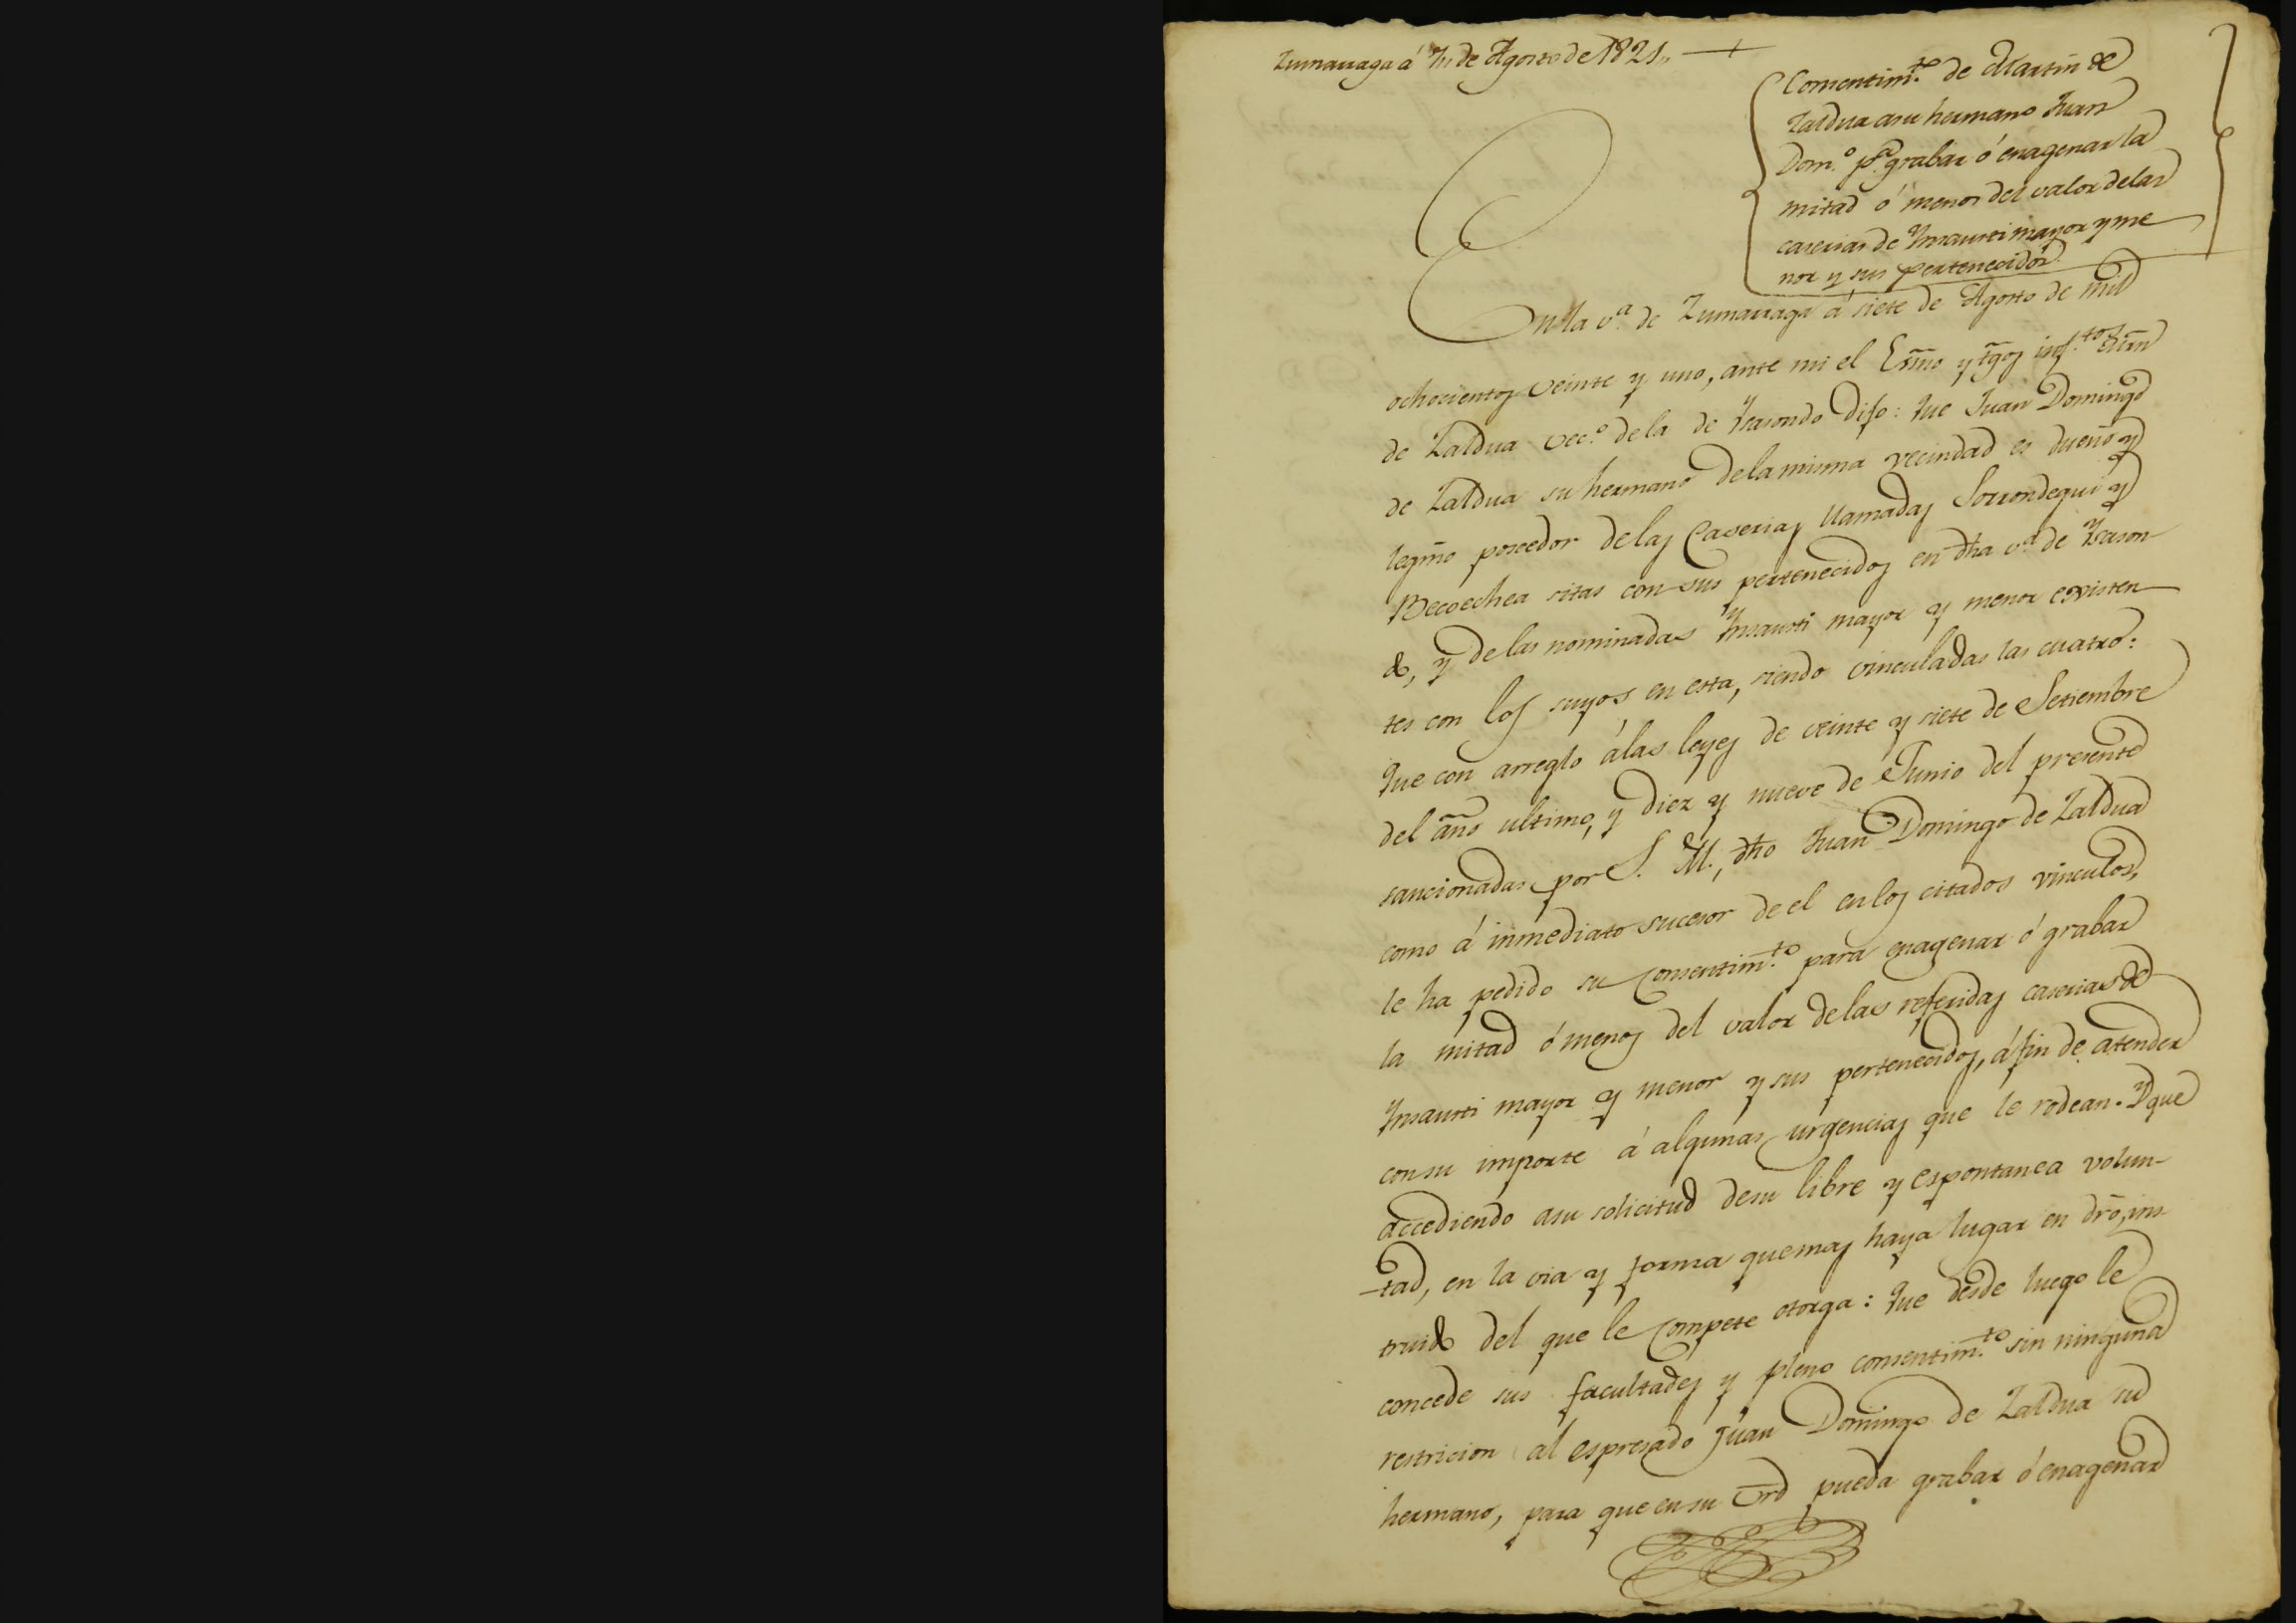 Zumarraga á 7,, de Agosto de 1821,,
Consentim.to de Martin de
Zaldua asu hermano Juan
Dom.o p.a grabar ó enagenar la
mitad ó menos del valor delas
caserias de Ynsausti mayor y me
nor y sus pertenecidos
En la v.a de Zumarraga á siete de Agosto de mil
ochocientos veinte y uno, ante mi el Esno y tgos inf.tos Mrn
de Zaldua vec.o de la de Ysasondo dijo: Que Juan Domingo
de Zaldua su hermano dela misma vecindad es dueño y
legmo poseedor delas Caserias llamadas Sorrondegui y
Becoechea sitas con sus pertenecidos en dha v.a de Ysason-
do, y delas nominadas Ynsausti mayor y menor existen-
tes con los suyos en esta, siendo vinculadas las cuatro:
Que con arreglo álas leyes de veinte y siete de Setiembre
del año ultimo, y diez y nueve de Junio del presente
sancionadas por S. M., dho Juan Domingo de Zaldua
como á inmediato sucesor de el enlos citados vinculos,
le ha pedido su consentim.to para enagenar ó grabar
la mitad ó menos del valor delas referidas caserias de
Ynsausti mayor y menor y sus pertenecidos, áfin de atender
consu importe á algunas urgencias que le rodean. Y que
accediendo asu solicitud desu libre y espontanea volun-
-tad, en la via y forma quemas haya lugar en dro, ins-
truido del que le compete otorga: Que desde luego le
concede sus facultades y pleno consentim.to sin ninguna
restricion al espresado Juan Domingo de Zaldua su
hermano, para que ensu vrd pueda grabar ó enagenar